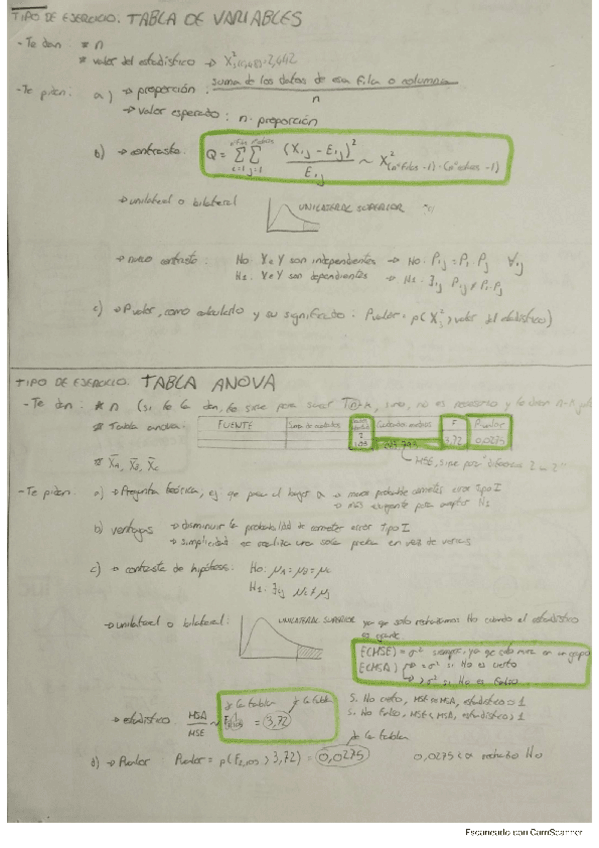 TIPO DE EJERCICIO: TABLA DE VARIABLES
- Te dan: * n
* valor del estadístico →
- Te piden: a) → proporción: suma de los datos de esa fila o columna
n
→ valor esperado: n · proporción
b) → contraste: Q = ΣΣ (Xij - Eij)² / Eij ~ X²(nº filas - 1)·(nº colum - 1)
→ unilateral o bilateral UNILATERAL SUPERIOR
→ contraste: H0: X e Y son independientes → H0: Pij = Pi · Pj ∀ij
H1: X e Y son dependientes → H1: ∃ij Pij ≠ Pi · Pj
c) → Pvalor, como calcularlo y su significado: Pvalor = p(X² > valor del estadístico)
TIPO DE EJERCICIO: TABLA ANOVA
- Te dan: * n (si te la dan, te sirve para
* Tabla anova: FUENTE Suma de cuadrados Cuadrados medios F Pvalor
2 3,72 0,0275
105
MSE,
* X̄A, X̄B, X̄C
- Te piden: a) → Pregunta teórica, → menos probable cometer error tipo I
→ más exigente para aceptar H1
b) ventajas → disminuir la probabilidad de cometer error tipo I
→ simplicidad se realiza una sola prueba en vez de varias
c) → contraste de hipótesis: H0: μA = μB = μC
H1: ∃ij μi ≠ μj
→ unilateral o bilateral: UNILATERAL SUPERIOR ya que solo rechazamos H0 cuando el estadístico
es grande
E(MSE) = σ² siempre, ya que solo en un grupo
E(MSA) → = σ² si H0 es cierto
→ > σ² si H0 es falso
→ estadístico MSA / MSE ~ F2,105 = 3,72
de la tabla de la tabla
Si H0 cierto, MSE ≈ MSA, estadístico ≈ 1
Si H0 falso, MSE < MSA, estadístico > 1
de la tabla
d) → Pvalor Pvalor = p(F2,105 > 3,72) = 0,0275 0,0275 < α rechazo H0
Escaneado con CamScanner